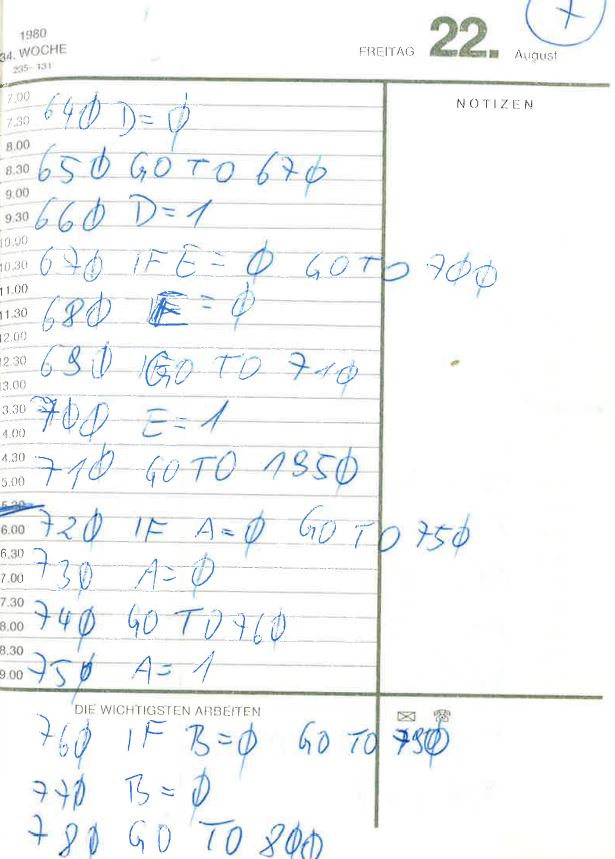 7
1980
34. WOCHE
235-131
FREITAG 22. August
NOTIZEN
7.00
7.30 640 D=0
8.00
8.30 650 GO TO 670
9.00
9.30 660 D=1
10.00
10.30 670 IF E=0 GOTO 700
11.00
11.30 680 E=0
12.00
12.30 690 GO TO 710
13.00
3.30 700 E=1
4.00
4.30 710 GO TO 1950
5.00
5.30
6.00 720 IF A=0 GO TO 750
6.30
7.00 730 A=0
7.30
8.00 740 GO TO 760
8.30
9.00 750 A=1
DIE WICHTIGSTEN ARBEITEN
760 IF B=0 GO TO 790
770 B=0
780 GO TO 800